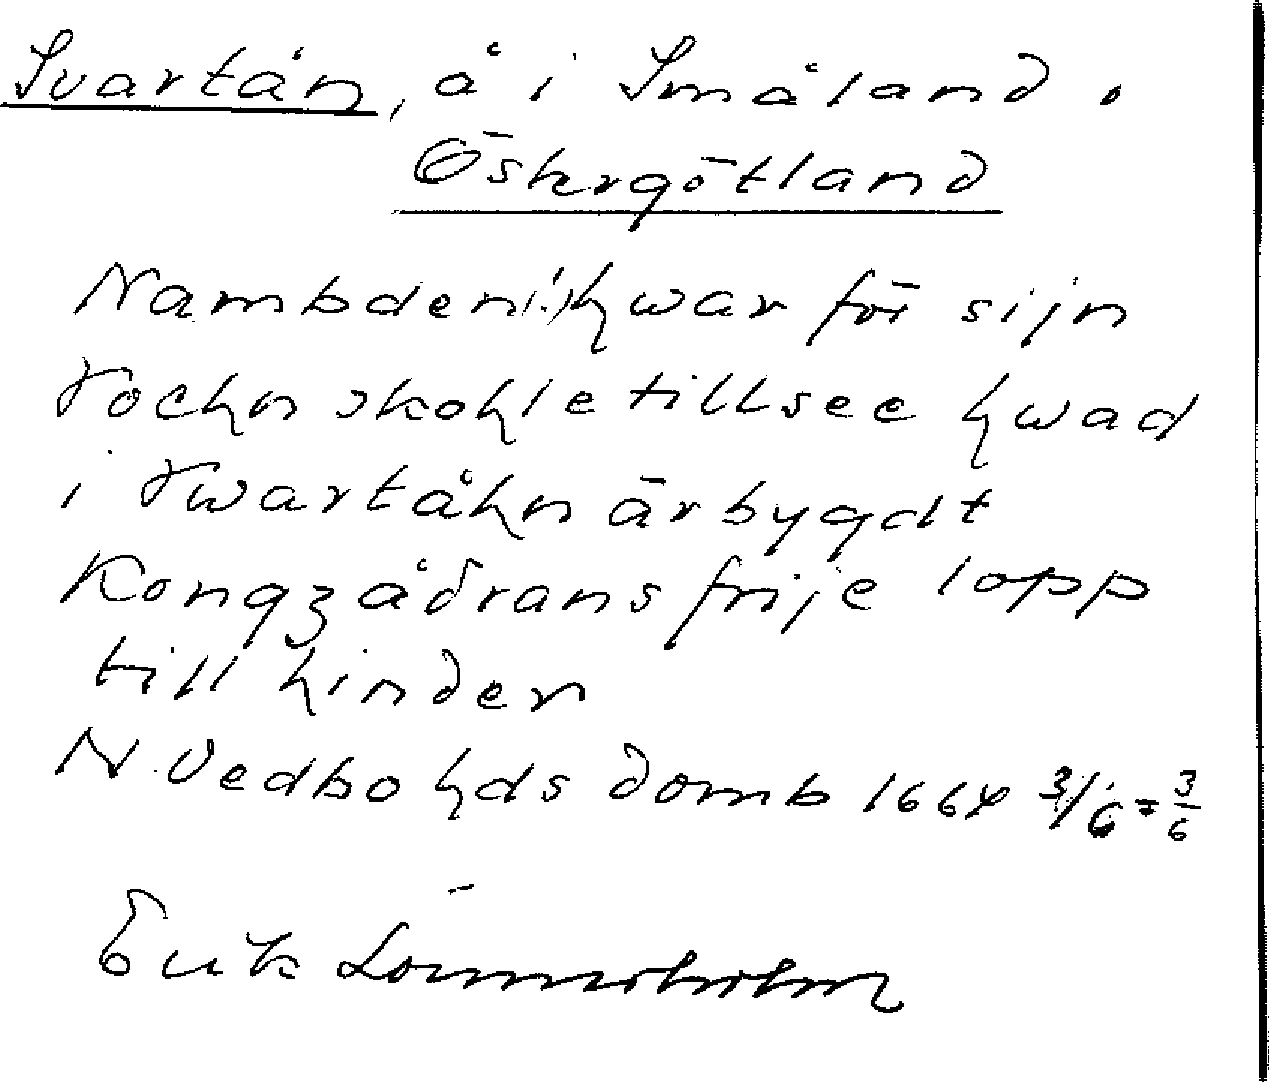 Svartån, å i Småland.
Östergötland
Nambden i: hwar för sijn
Sochn skohle tillsee hwad
i Swartåhn är bygdt
Kongzådrans frije lopp
till hinder
N. Vedbo hds domb 1664 3/6 = 3/6
Erik Lönnerholm